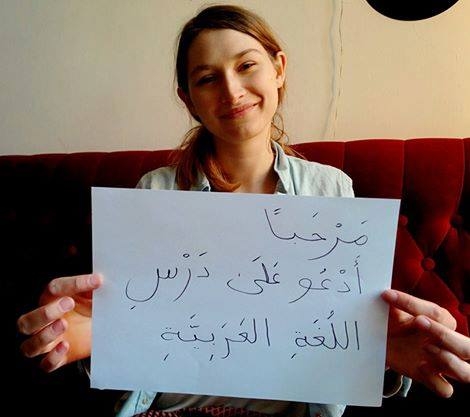 مَرْحَبًا
أَدْعُو عَلَى دَرْسِ
اللُغَةِ العَرَبِيَّةِ